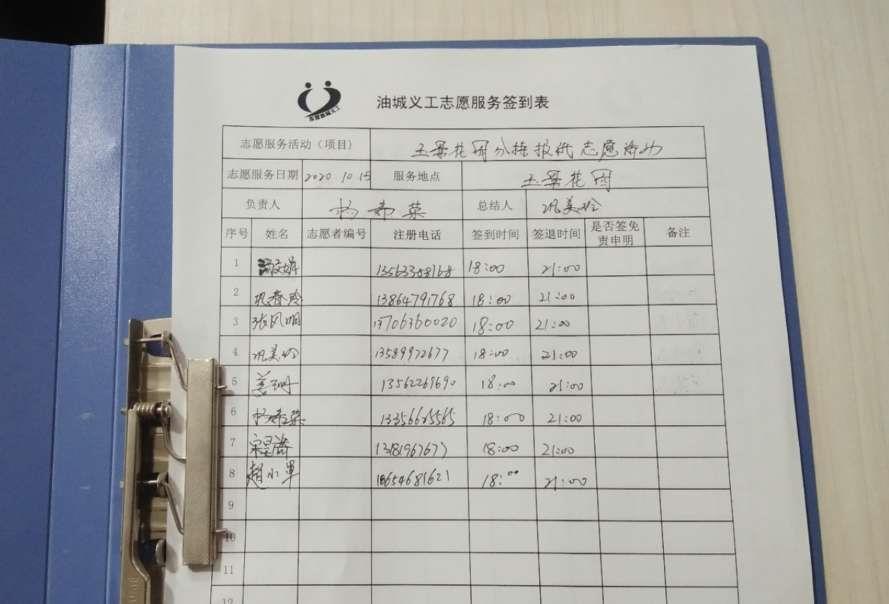 油城义工志愿服务签到表
志愿服务活动（项目） 玉景花园分拣报纸志愿活动
志愿服务日期 2020 10 15 服务地点 玉景花园
负责人 杨希菜 总结人 巩美玲
序号 姓名 志愿者编号 注册电话 签到时间 签退时间 是否签免责申明 备注
1 18:00 21:00
2 巩春玲 13864791768 18:00 21:00
3 张凤明 13706360020 18:00 21:00
4 巩美玲 13589972677 18:00 21:00
5 13562269690 18:00 21:00
6 杨希菜 13356625565 18:00 21:00
7 18:00 21:00
8 赵小军 18654681621 18:00 21:00
9
10
11
12